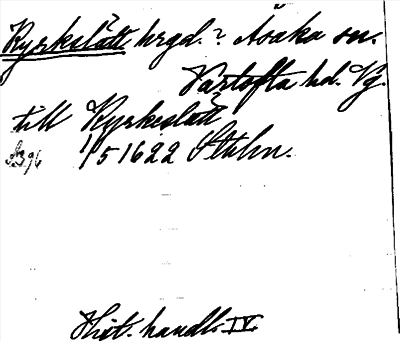 Kyrkslätt hrgd.? Åsaka sn.
Vartofta hd. Vg.
till Kyrkislätt
1/5 1622 Sthlm.
Hist. handl. IV.